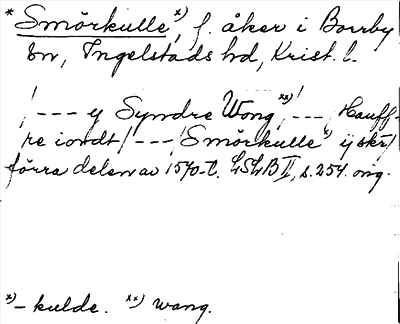 * Smörkulle, x) f. åker i Borrby
sn, Ingelstads hd, Krist. l.
/--- y Syndre Wong xx) /---/ Hauff-
re iordt/---/ Smörkulle x) ij skr/
förra delen av 1570-t. LSLB II, s. 254. orig.
x) - kulde. xx) wang.